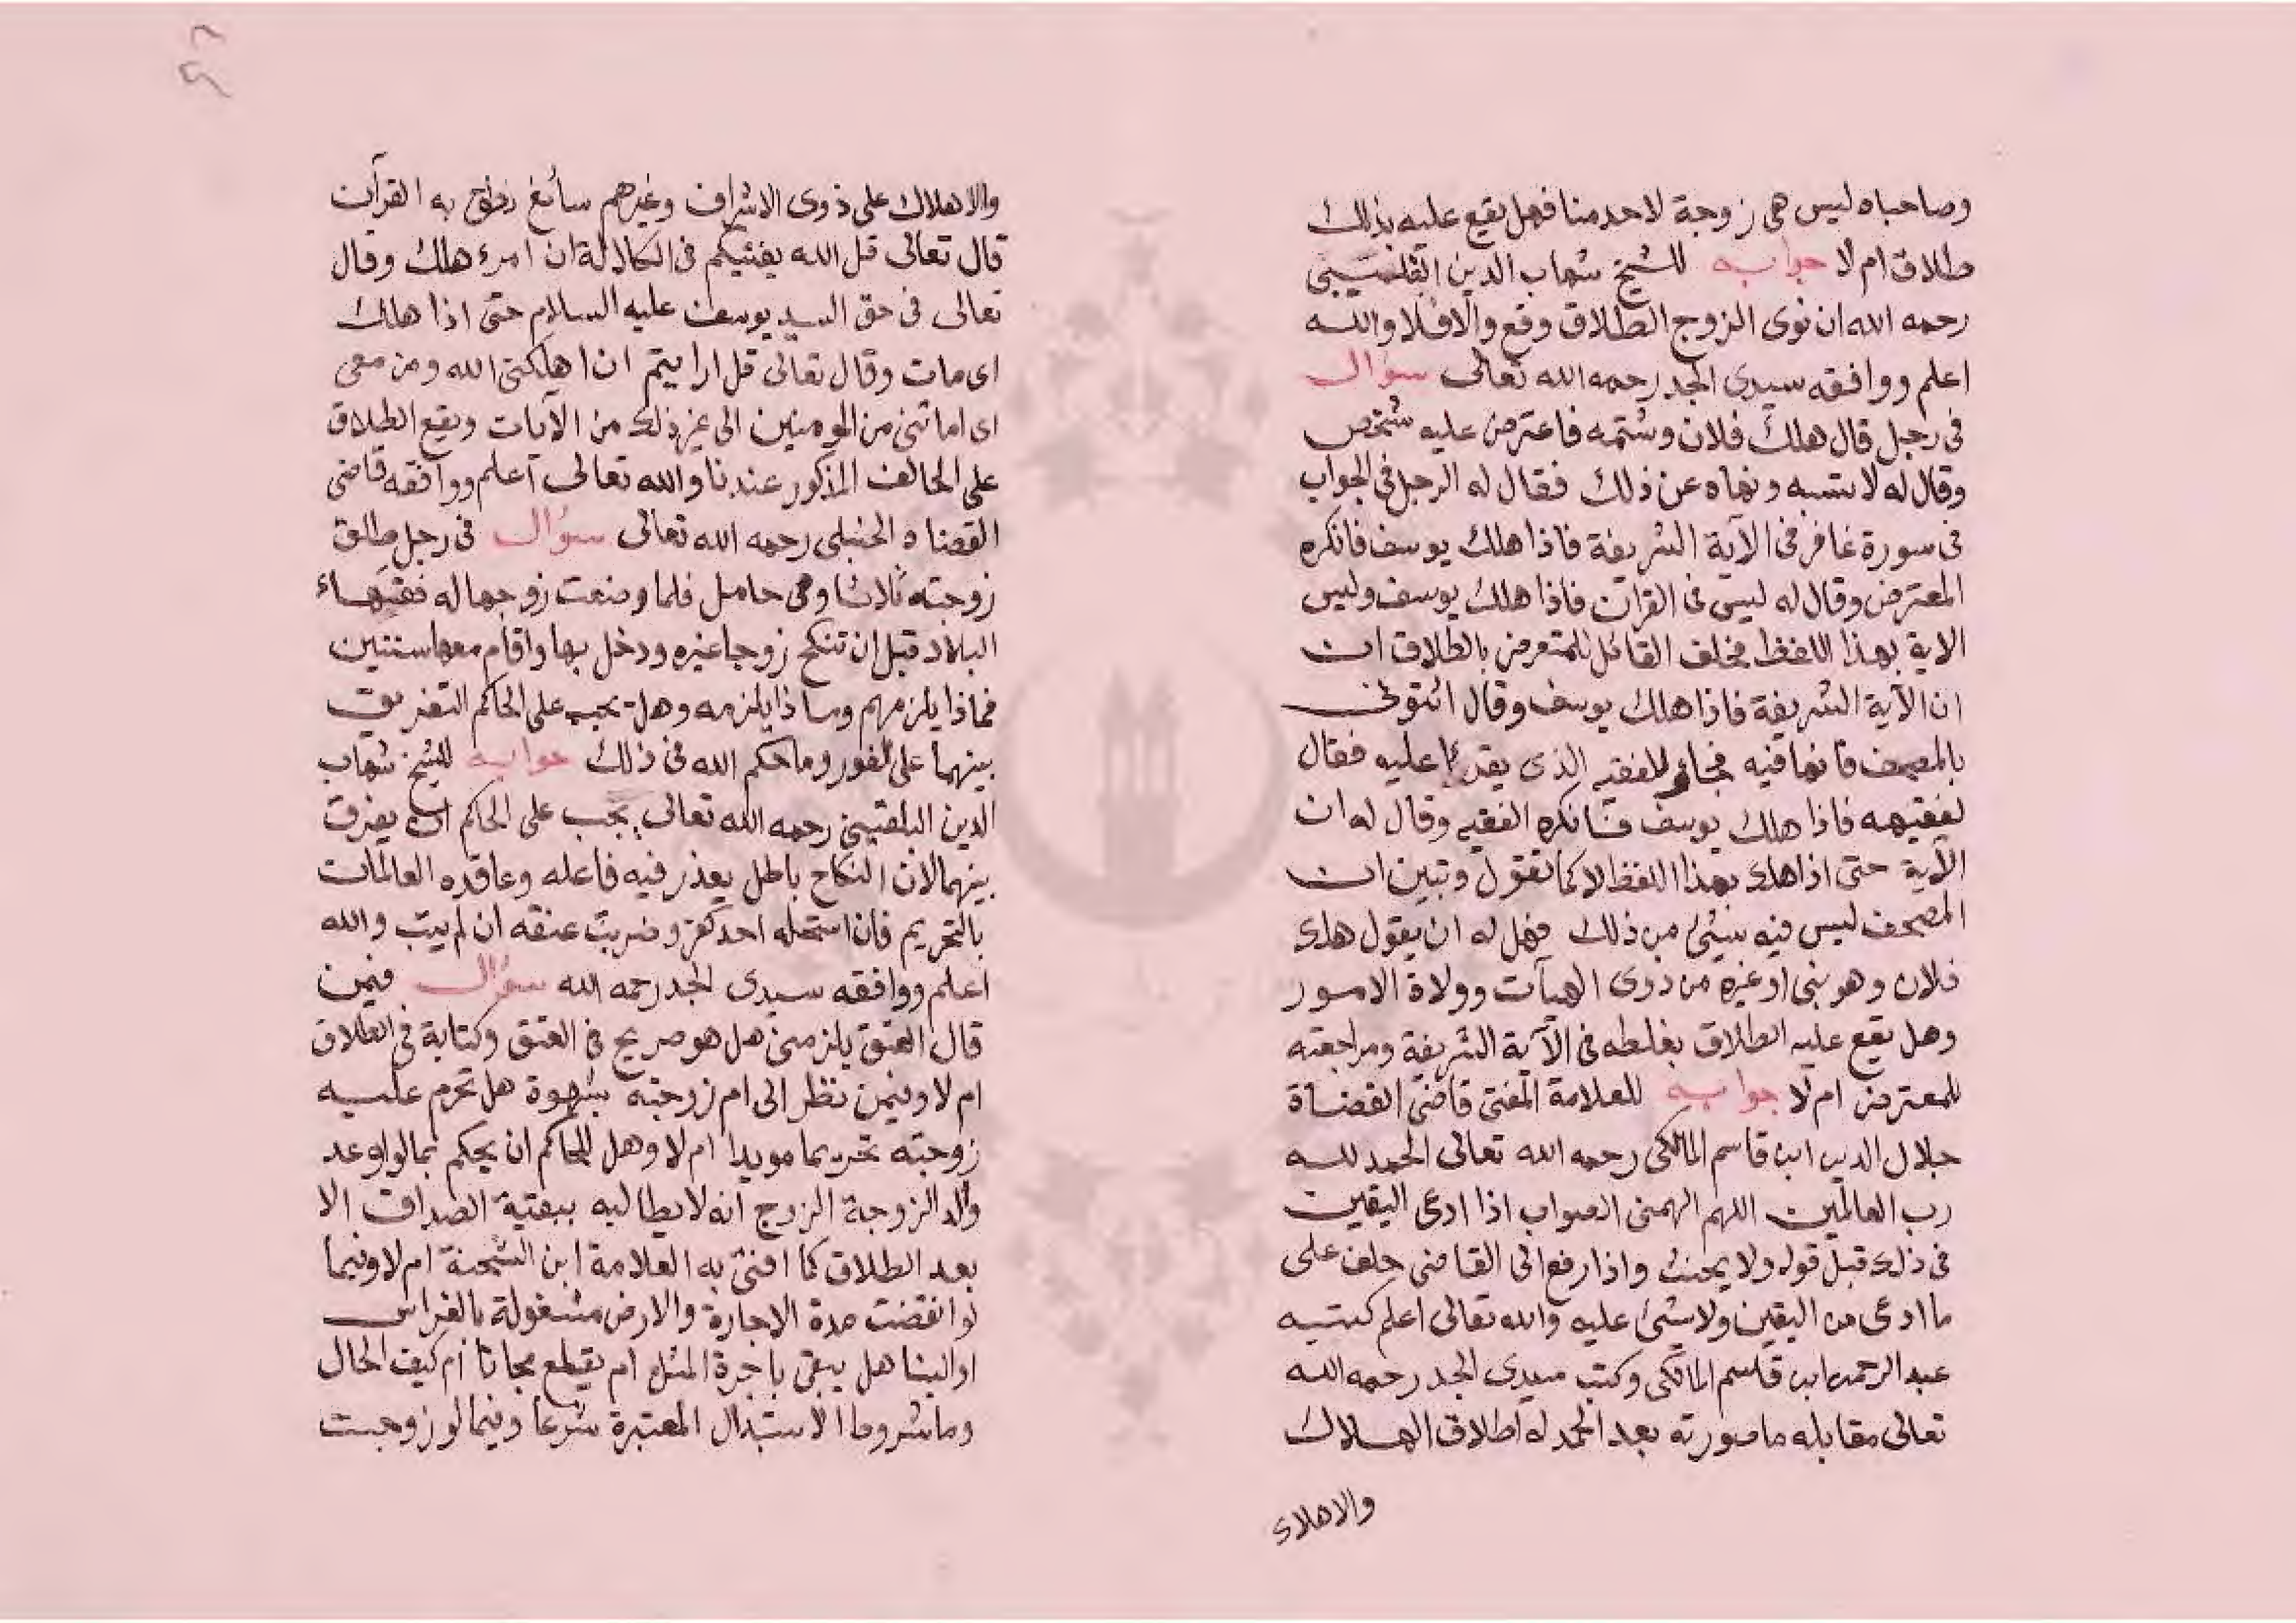 وصاحباه ليس هى زوجة لاحد منا فهل يقع عليه بذلك
طلاق ام لا جوابه للشيخ شهاب الدين
رحمه الله ان نوى الزوج الطلاق وقع والا فلا والله
اعلم ووافقه سيدى الجد رحمه الله تعالى سؤال
فى رجل قال هلك فلان وشتمه فاعترض عليه شخص
وقال له لا تسبه ونهاه عن ذلك فقال له الرجل فى الجواب
فى سورة غافر فى الآية الشريفة فاذا هلك يوسف فانكره
المعترض وقال له ليس فى القرآن فاذا هلك يوسف وليس
الاية بهذا اللفظ فحلف القائل للمتعرض بالطلاق ان
ان الآية الشريفة فاذا هلك يوسف وقال ائتونى
بالمصحف فانها فيه فجاء للفقيه الذى يقرأ عليه فقال
لفقيهه فاذا هلك يوسف فانكره الفقيه وقال له ان
الآية حتى اذا هلك بهذا اللفظ لا كما تقول وتبين ان
المصحف ليس فيه شيئ من ذلك فهل له ان يقول هلك
فلان وهو نبى او غيره من ذوى الهيآت وولاة الامور
وهل يقع عليه الطلاق بغلطه فى الآية الشريفة ومراجعته
للمعترض ام لا جوابه للعلامة المفتى قاضى القضاة
جلال الدين ابن قاسم المالكى رحمه الله تعالى الحمد لله
رب العالمين اللهم الهمنى الصواب اذا ادعى اليقين
فى ذلك قبل قوله ولا يحنث واذا رفع الى القاضى حلف على
ما ادعى من اليقين ولا شيئ عليه والله تعالى اعلم كتبه
عبد الرحمن ابن قاسم المالكى وكتب سيدى الجد رحمه الله
تعالى مقابله ما صورته بعد الحمد له اطلاق الهلاك
والاهلاك
والاهلاك على ذوى الاشراف وغيرهم سائغ به القرآن
قال تعالى قل الله يفتيكم فى الكلالة ان امرء هلك وقال
تعالى فى حق السيد يوسف عليه السلام حتى اذا هلك
اى مات وقال تعالى قل ارايتم ان اهلكنى الله ومن معى
اى اماتنى من المومنين الى غير ذلك من الآيات ويقع الطلاق
على الحالف المذكور عندنا والله تعالى اعلم ووافقه قاضى
القضاة الحنبلى رحمه الله تعالى سؤال فى رجل طلق
زوجته ثلاثا وهى حامل فلما وضعت زوجها له فقيهاء
البلاد قبل ان تنكح زوجا غيره ودخل بها واقام معها سنتين
فماذا يلزمهم وماذا يلزمه وهل يجب على الحاكم التفريق
بينهما على الفور وما حكم الله فى ذلك جوابه للشيخ شهاب
الدين البلقينى رحمه الله تعالى يجب على الحاكم ان يفرق
بينهما لان النكاح باطل يعذر فيه فاعله وعاقده العالمان
بالتحريم فان استحله احد كفر وضربت عنقه ان لم يتب والله
اعلم ووافقه سيدى الجد رحمه الله سؤال فيمن
قال العتق يلزمنى هل هو صريح فى العتق وكناية فى الطلاق
ام لا وفيمن نظر الى ام زوجته بشهوة هل تحرم عليه
زوجته تحريما مويدا ام لا وهل للحاكم ان يحكم بما لو اوعد
والد الزوجة الزوج انه لا يطالبه ببقية الصداق الا
بعد الطلاق كما افتى به العلامة ابن الشحنة ام لا وفيما
لو انقضت مدة الاجارة والارض مشغولة بالغراس
او البنا هل يبقى باجرة المثل ام يقطع مجانا ام كيف الحال
وما شروط الاستبدال المعتبرة شرعا وفيما لو زوجت